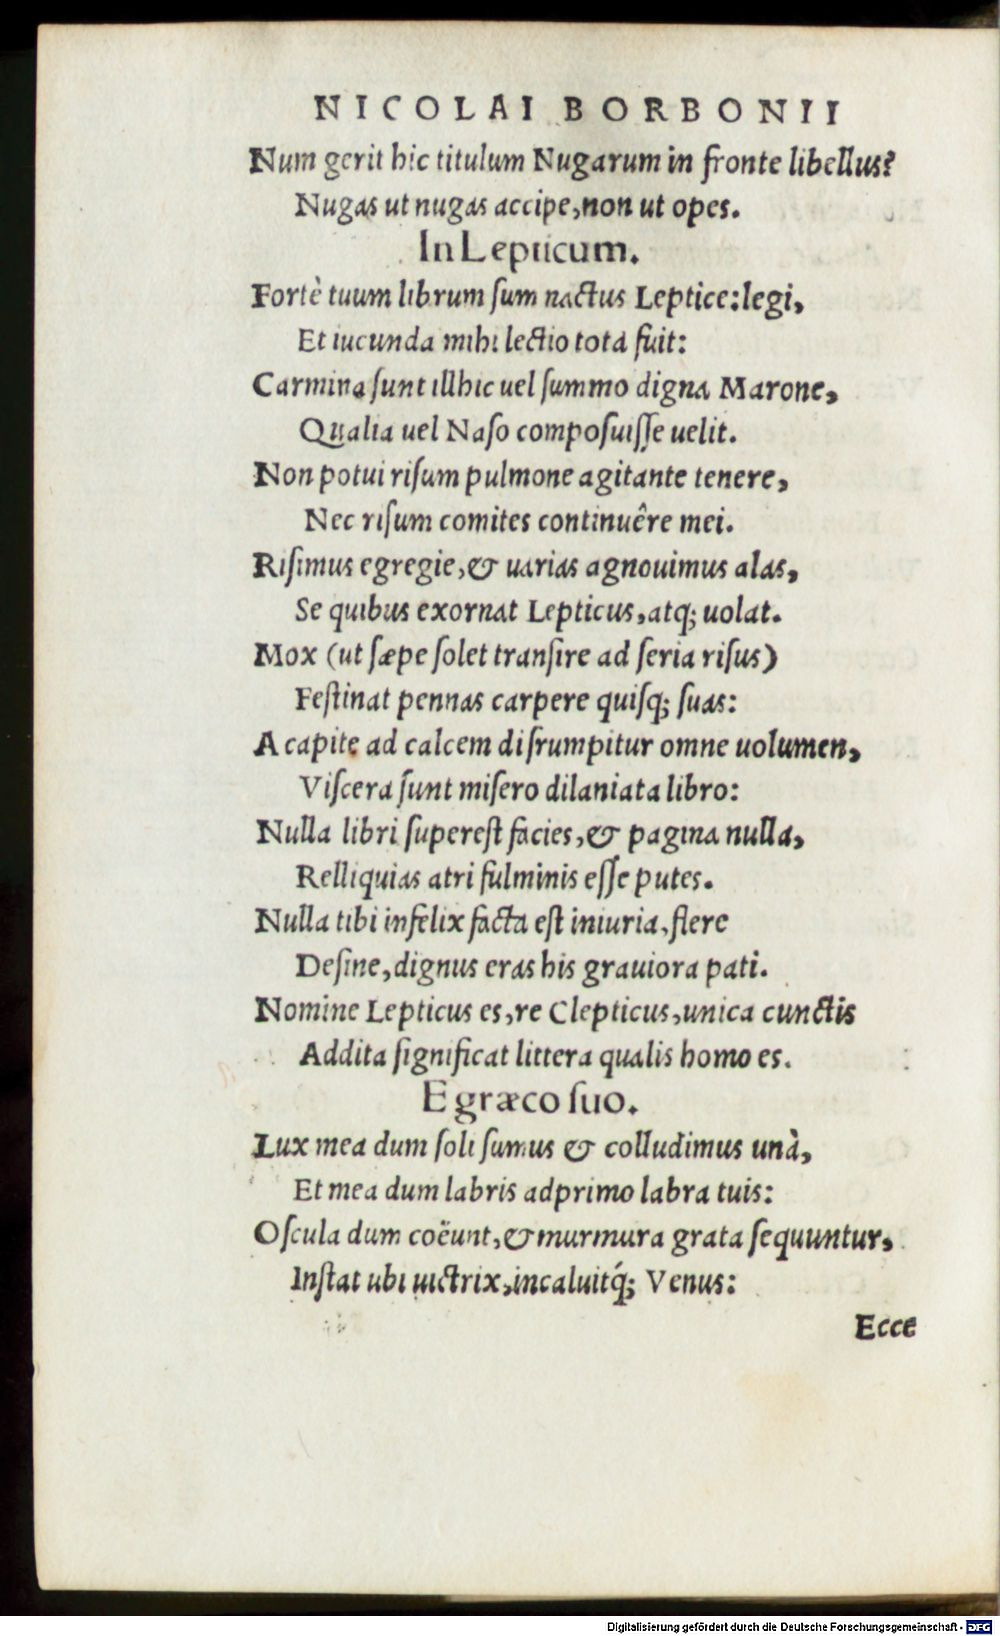 NICOLAI BORBONII
Num gerit hic titulum Nugarum in fronte libellus?
Nugas ut nugas accipe, non ut opes.
In Lepticum.
Fortè tuum librum ſum nactus Leptice: legi,
Et iucunda mihi lectio tota fuit:
Carmina ſunt illhic uel ſummo digna Marone,
Qualia uel Naſo compoſuiſſe uelit.
Non potui riſum pulmone agitante tenere,
Nec riſum comites continuêre mei.
Riſimus egregie, & uarias agnouimus alas,
Se quibus exornat Lepticus, atq; uolat.
Mox (ut ſæpe ſolet tranſire ad ſeria riſus)
Feſtinat pennas carpere quiſq; ſuas:
A capite ad calcem diſrumpitur omne uolumen,
Viſcera ſunt miſero dilaniata libro:
Nulla libri ſupereſt facies, & pagina nulla,
Relliquias atri fulminis eſſe putes.
Nulla tibi infelix facta eſt iniuria, flere
Deſine, dignus eras his grauiora pati.
Nomine Lepticus es, re Clepticus, unica cunctis
Addita ſignificat littera qualis homo es.
E græco ſuo.
Lux mea dum ſoli ſumus & colludimus unà,
Et mea dum labris adprimo labra tuis:
Oſcula dum coëunt, & murmura grata ſequuntur,
Inſtat ubi uictrix, incaluitq́; Venus:
Ecce
Digitalisierung gefördert durch die Deutsche Forschungsgemeinschaft - DFG